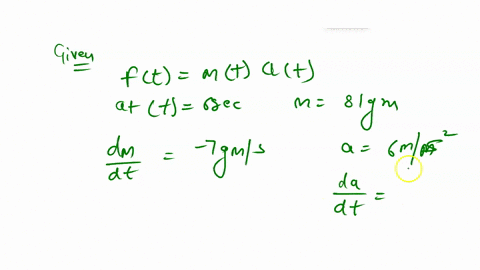 Given
f(t) = m(t) a(t)
at (t) = 8sec m = 81gm
dm/dt = -7gm/s a = 6m/s²
da/dt =